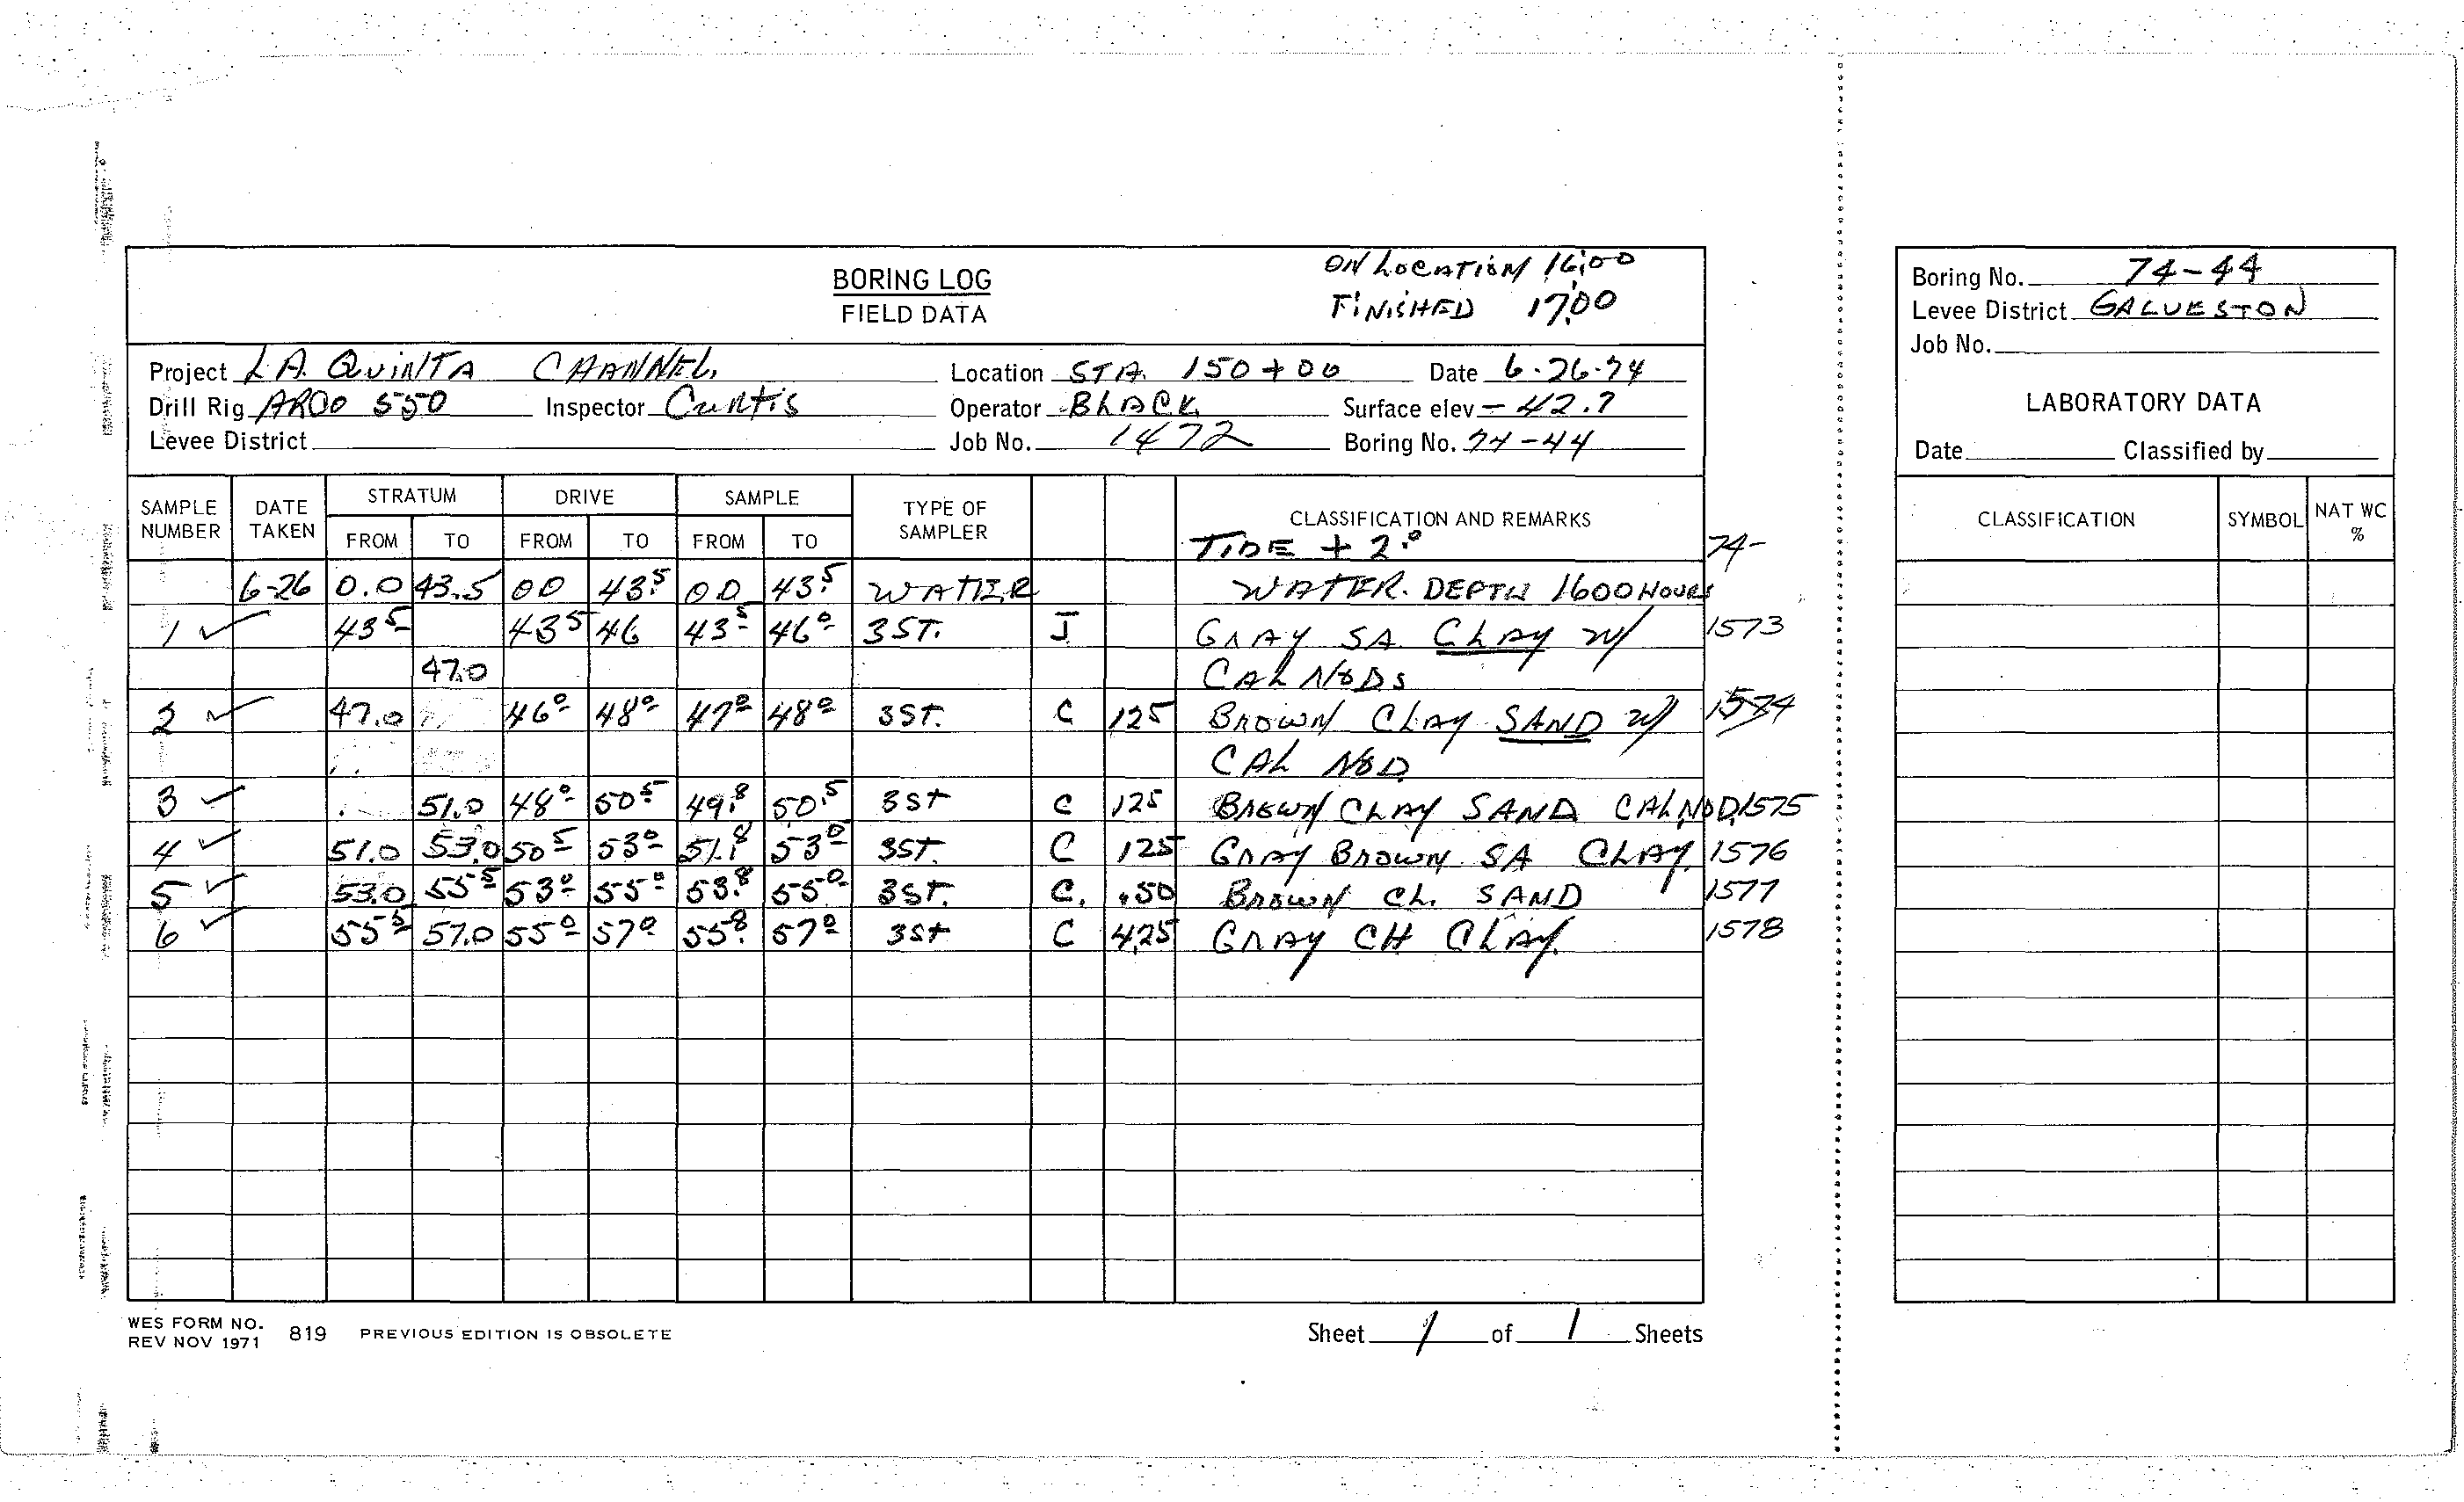 ON LOCATION 16:00
BORING LOG
FINISHED 17:00
FIELD DATA
Project LA QUINTA CHANNEL Location STA. 150+00 Date 6-26-74
Drill Rig ARCO 550 Inspector Curtis Operator BLACK Surface elev -42.7
Levee District Job No. 1472 Boring No. 74-44
SAMPLE NUMBER DATE TAKEN STRATUM FROM TO DRIVE FROM TO SAMPLE FROM TO TYPE OF SAMPLER CLASSIFICATION AND REMARKS
TIDE + 2.0 74-
6-26 0.0 43.5 00 43.5 00 43.5 WATER WATER. DEPTH 1600 HOURS
1 ✓ 43.5 43.5 46 43.5 46.0 3ST. J GRAY SA. CLAY W/ 1573
47.0 CAL NODS
2 ✓ 47.0 46.0 48.0 47.0 48.0 3ST. C 125 BROWN CLAY SAND W/ 1574
CAL NOD.
3 ✓ 51.0 48.0 50.5 49.8 50.5 3ST C 125 BROWN CLAY SAND CAL NOD. 1575
4 ✓ 51.0 53.0 50.5 53.0 51.8 53.0 3ST. C 125 GRAY BROWN SA CLAY 1576
5 ✓ 53.0 55.5 53.0 55.0 53.8 55.0 3ST. C. .50 BROWN CL. SAND 1577
6 ✓ 55.5 57.0 55.0 57.0 55.8 57.0 3ST C 4.25 GRAY CH CLAY. 1578
WES FORM NO. 819 PREVIOUS EDITION IS OBSOLETE
REV NOV 1971
Sheet 1 of 1 Sheets
Boring No. 74-44
Levee District GALVESTON
Job No.
LABORATORY DATA
Date Classified by
CLASSIFICATION SYMBOL NAT WC %